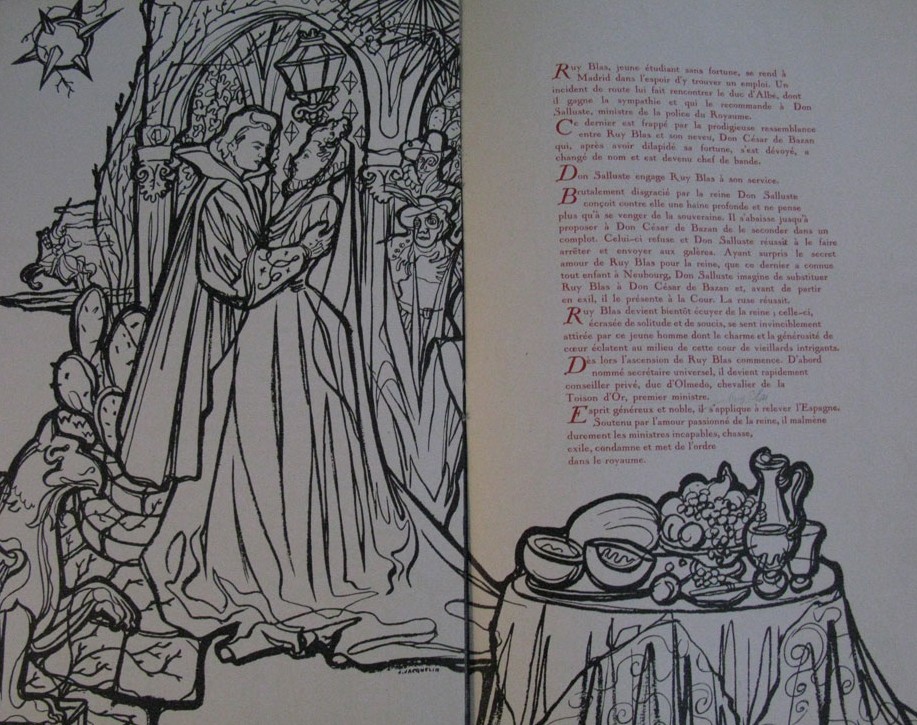 Ruy Blas, jeune étudiant sans fortune, se rend à
Madrid dans l'espoir d'y trouver un emploi. Un
incident de route lui fait rencontrer le duc d'Albe, dont
il gagne la sympathie et qui le recommande à Don
Salluste, ministre de la police du Royaume.
Ce dernier est frappé par la prodigieuse ressemblance
entre Ruy Blas et son neveu, Don César de Bazan
qui, après avoir dilapidé sa fortune, s'est dévoyé, a
changé de nom et est devenu chef de bande.
Don Salluste engage Ruy Blas à son service.
Brutalement disgracié par la reine Don Salluste
conçoit contre elle une haine profonde et ne pense
plus qu'à se venger de la souveraine. Il s'abaisse jusqu'à
proposer à Don César de Bazan de le seconder dans un
complot. Celui-ci refuse et Don Salluste réussit à le faire
arrêter et envoyer aux galères. Ayant surpris le secret
amour de Ruy Blas pour la reine, que ce dernier a connue
tout enfant à Neubourg, Don Salluste imagine de substituer
Ruy Blas à Don César de Bazan et, avant de partir
en exil, il le présente à la Cour. La ruse réussit.
Ruy Blas devient bientôt écuyer de la reine ; celle-ci,
écrasée de solitude et de soucis, se sent invinciblement
attirée par ce jeune homme dont le charme et la générosité de
cœur éclatent au milieu de cette cour de vieillards intrigants.
Dès lors l'ascension de Ruy Blas commence. D'abord
nommé secrétaire universel, il devient rapidement
conseiller privé, duc d'Olmedo, chevalier de la
Toison d'Or, premier ministre.
Esprit généreux et noble, il s'applique à relever l'Espagne.
Soutenu par l'amour passionné de la reine, il malmène
durement les ministres incapables, chasse,
exile, condamne et met de l'ordre
dans le royaume.
J. JACQUELIN